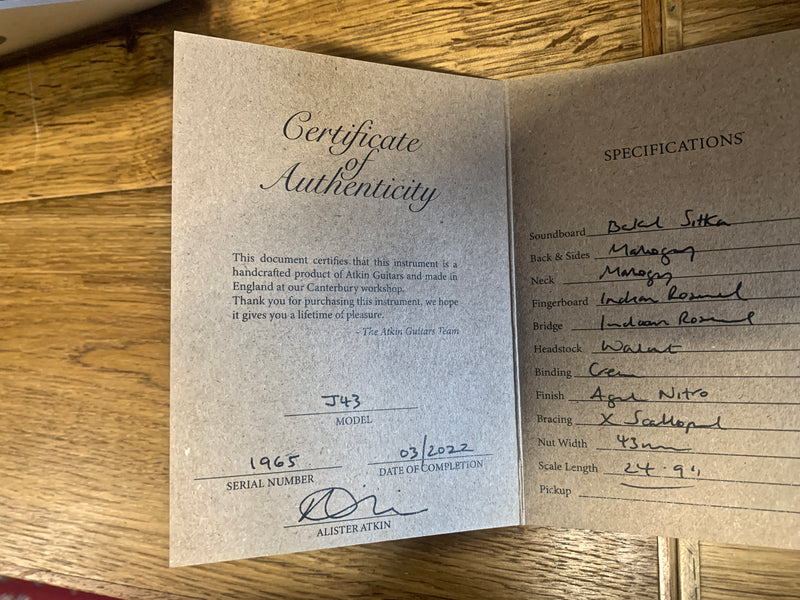 Certificate
of
Authenticity
This document certifies that this instrument is a
handcrafted product of Atkin Guitars and made in
England at our Canterbury workshop.
Thank you for purchasing this instrument, we hope
it gives you a lifetime of pleasure.
- The Atkin Guitars Team
J43
MODEL
1965
SERIAL NUMBER
03/2022
DATE OF COMPLETION
ALISTER ATKIN
SPECIFICATIONS
Soundboard Baked Sitka
Back & Sides Mahogany
Neck Mahogany
Fingerboard Indian Rosewood
Bridge Indian Rosewood
Headstock Walnut
Binding Cream
Finish Aged Nitro
Bracing X Scalloped
Nut Width 43mm
Scale Length 24.9"
Pickup